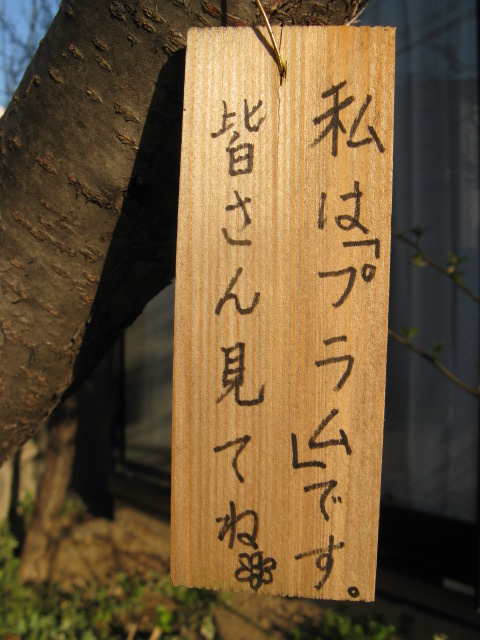 私は「プラム」です。
皆さん見てね